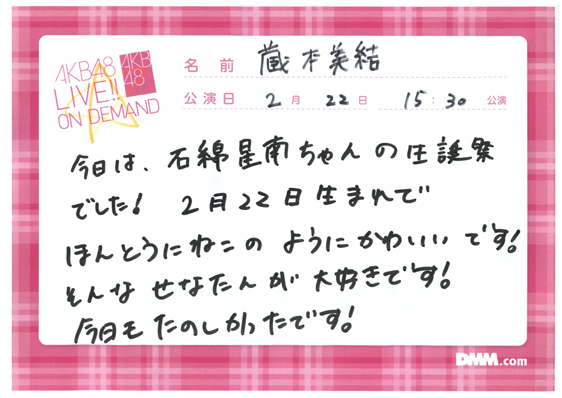 AKB48
LIVE!!
ON DEMAND
AKB
48
名前 蔵本美結
公演日 2月 22日 15:30 公演
今日は、石綿星南ちゃんの生誕祭
でした! 2月22日生まれで
ほんとうにねこのようにかわいいです!
そんなせなたんが大好きです!
今日もたのしかったです!
DMM.com